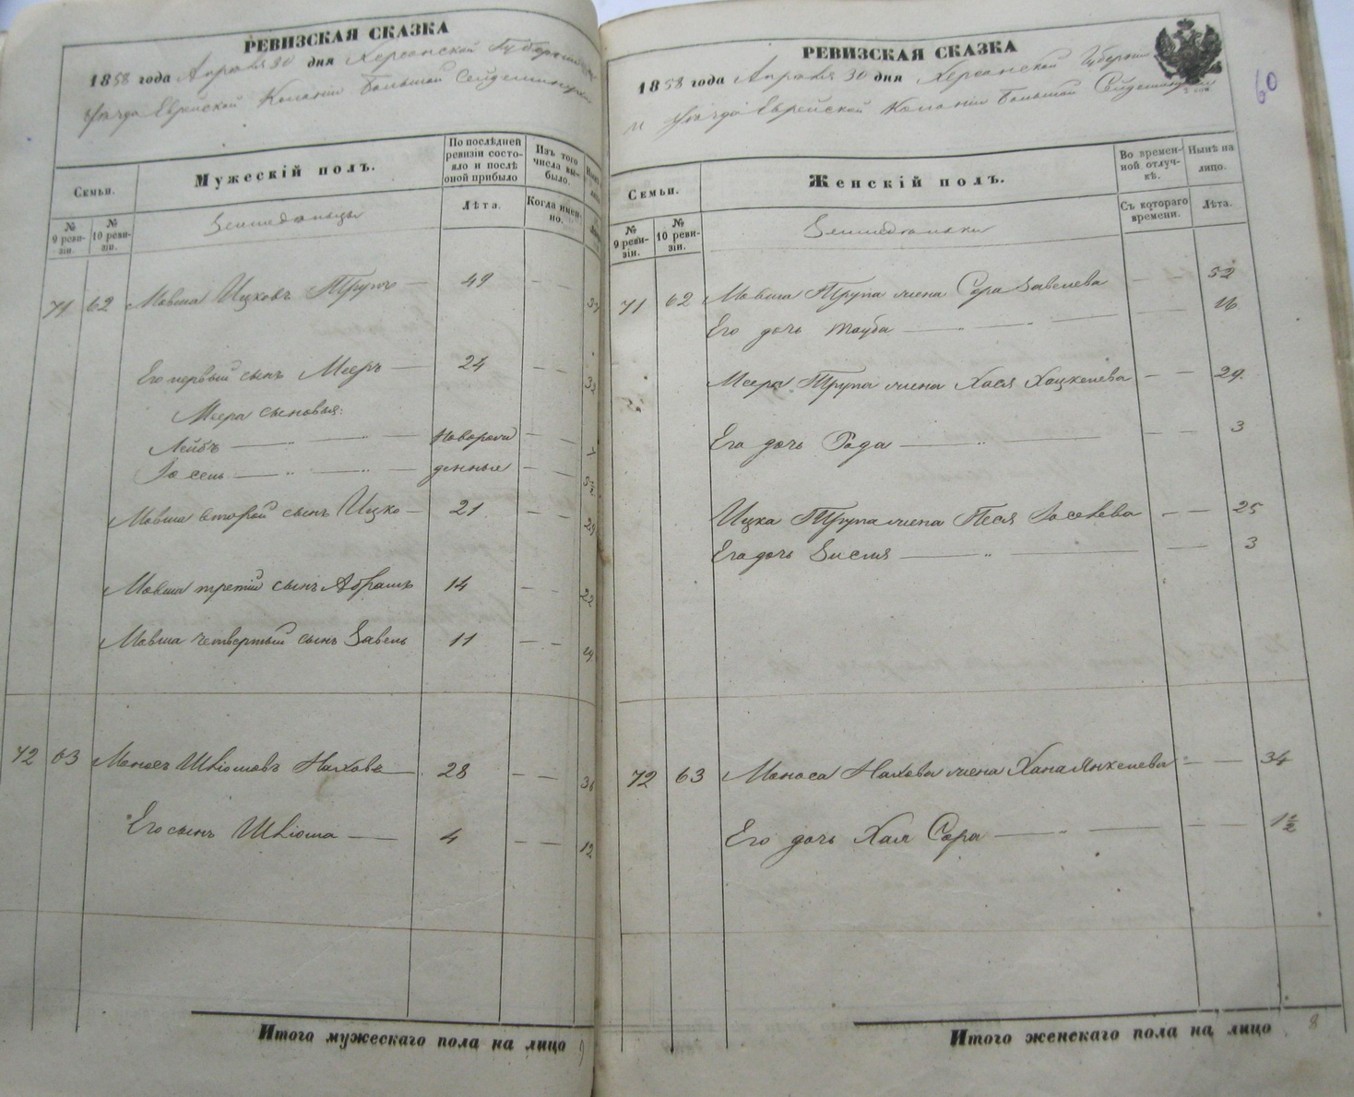 РЕВИЗСКАЯ СКАЗКА
1858 года Апреля 30 дня Херсонской Губерніи
Уѣзда Еврейской Колоніи Большой Сейдеминухи
Семьи.
Мужескій полъ.
По послѣдней ревизіи состояло и послѣ оной прибыло
Изъ того числа выбыло.
№ 9 ревизіи.
№ 10 ревизіи.
Лѣта.
Когда именно.
71 62 Мовша Ицковъ Трупъ — 49 — —
Его первый сынъ Мееръ — 24 — — 32
Меера сыновья:
Лейбъ — " — — новорож — —
Іосель — " — — денные — — 5½
Мовша второй сынъ Ицко — 21 — — 29
Мовша третій сынъ Абрамъ 14 — — 22
Мовша четвертый сынъ Завель 11 — — 19
72 63 Моносъ Шліомовъ Нахова — 28 — — 36
Его сынъ Шліома — 4 — — 12
Итого мужескаго пола на лицо 9
РЕВИЗСКАЯ СКАЗКА
1858 года Апреля 30 дня Херсонской Губерніи
и Уѣзда Еврейской Колоніи Большой Сейдеминухи
60
Семьи.
Женскій полъ.
Во временной отлучкѣ.
Нынѣ на лицо.
№ 9 ревизіи.
№ 10 ревизіи.
Съ котораго времени.
Лѣта.
71 62 Мовша Трупа жена Сора Завелева — — 52
Его дочь Тауба — — — — 16
Меера Трупа жена Хася Хацкелева — — 29
Его дочь Рода — " — — 3
Ицка Трупа жена Песя Іоселева — — 25
Его дочь Зисля — " — — 3
72 63 Моноса Наховы жена Хана Янкелева — — 34
Его дочь Хая Сора — " — — — 1½
Итого женскаго пола на лицо 8